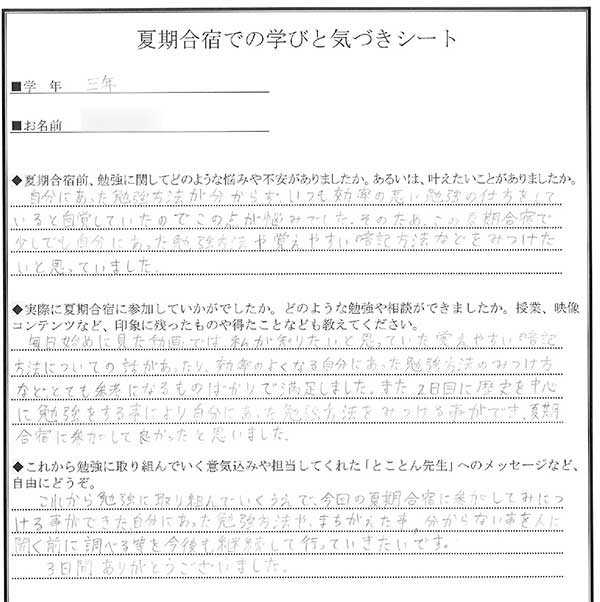 夏期合宿での学びと気づきシート
■学　年　三年
■お名前
◆夏期合宿前、勉強に関してどのような悩みや不安がありましたか。あるいは、叶えたいことがありましたか。
自分にあった勉強方法が分からず、いつも効率の悪い勉強の仕方をして
いると自覚していたのでこの点が悩みでした。そのため、この夏期合宿で
少しでも自分にあった勉強方法や覚えやすい暗記方法などをみつけた
いと思っていました。
◆実際に夏期合宿に参加していかがでしたか。どのような勉強や相談ができましたか。授業、映像
コンテンツなど、印象に残ったものや得たことなども教えてください。
毎日始めに見た動画では、私が知りたいと思っていた覚えやすい暗記
方法についての話があったり、効率のよくなる自分にあった勉強方法のみつけ方
などとても参考になるものばかりで満足しました。また2日目に歴史を中心
に勉強をする事により自分にあった勉強方法をみつける事ができ、夏期
合宿に参加して良かったと思いました。
◆これから勉強に取り組んでいく意気込みや担当してくれた「とことん先生」へのメッセージなど、
自由にどうぞ。
これから勉強に取り組んでいくうえで、今回の夏期合宿に参加してみにつ
ける事ができた自分にあった勉強方法や、まちがえた事、分からない事を人に
聞く前に調べる事を今後も継続して行っていきたいです。
3日間ありがとうございました。